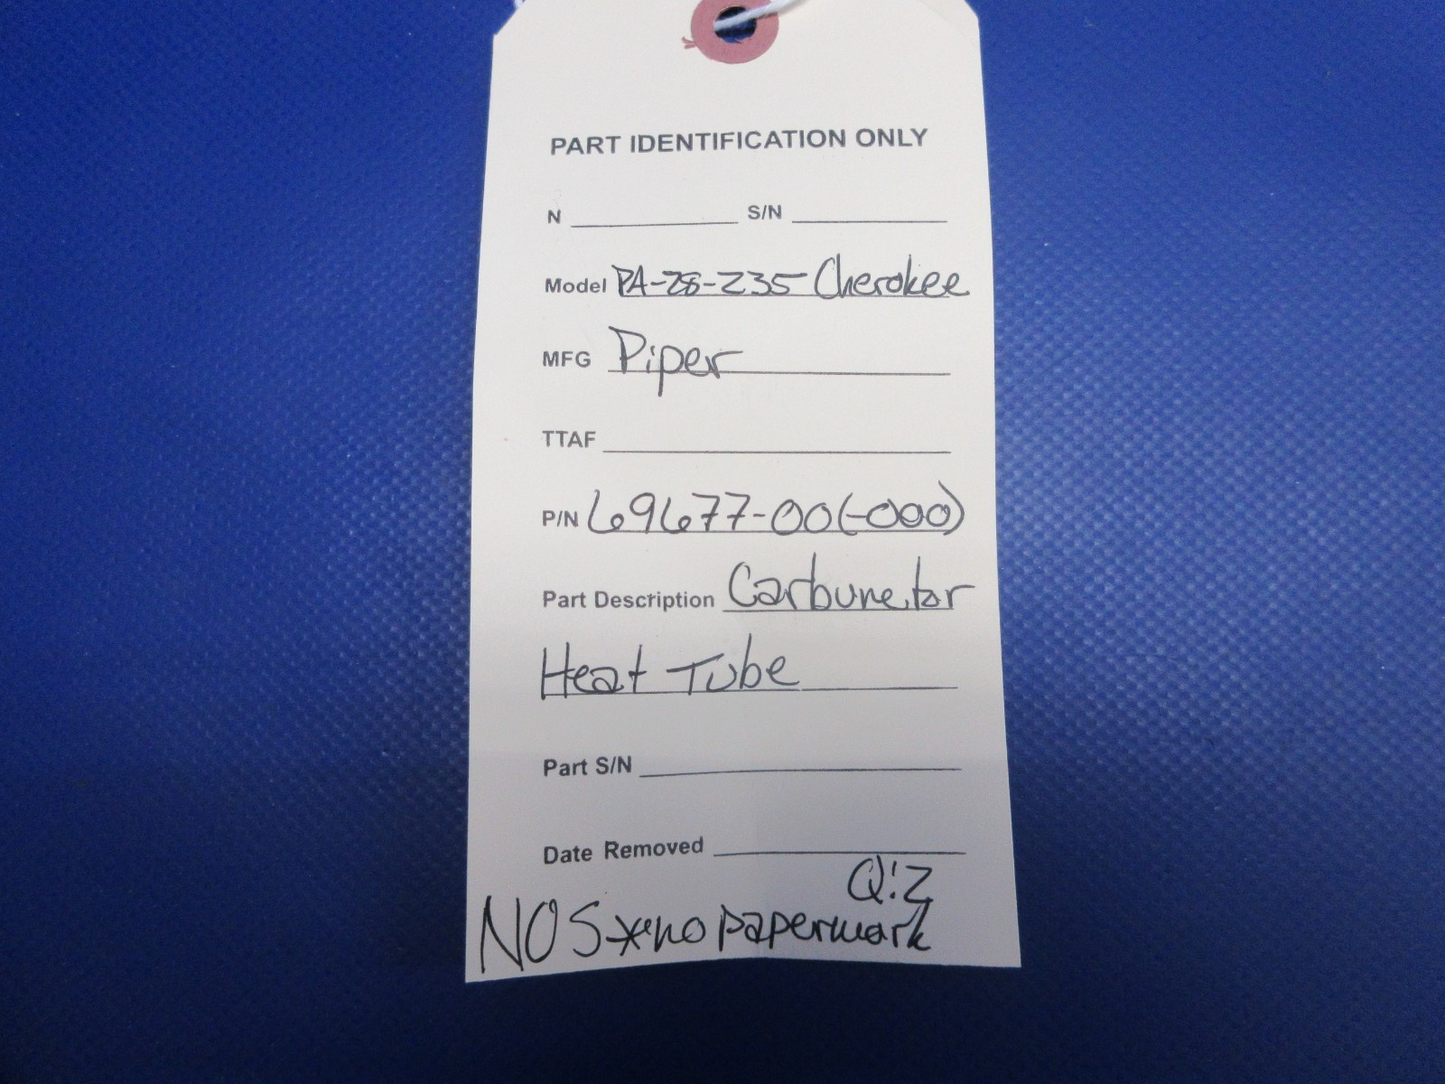 PART IDENTIFICATION ONLY
N S/N
Model PA-28-235 Cherokee
MFG Piper
TTAF
P/N 69677-00(-000)
Part Description Carburetor
Heat Tube
Part S/N
Date Removed
Q:2
NOS *no papermark